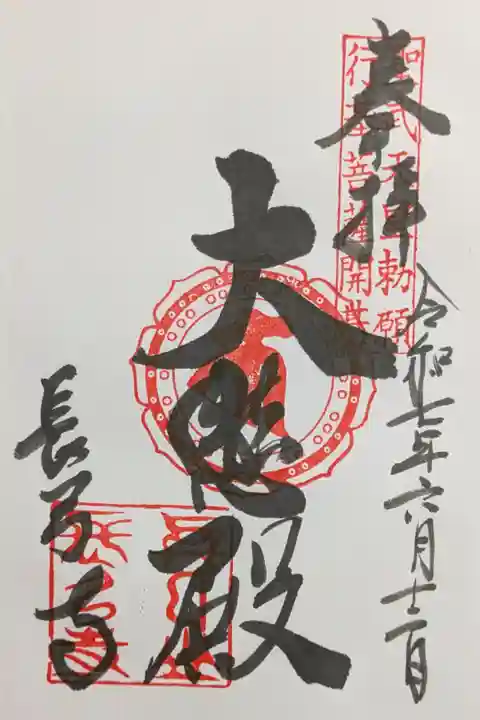 奉拝
聖武天皇勅願
行基菩薩開基
令和七年六月十二日
大悲殿
長弓寺